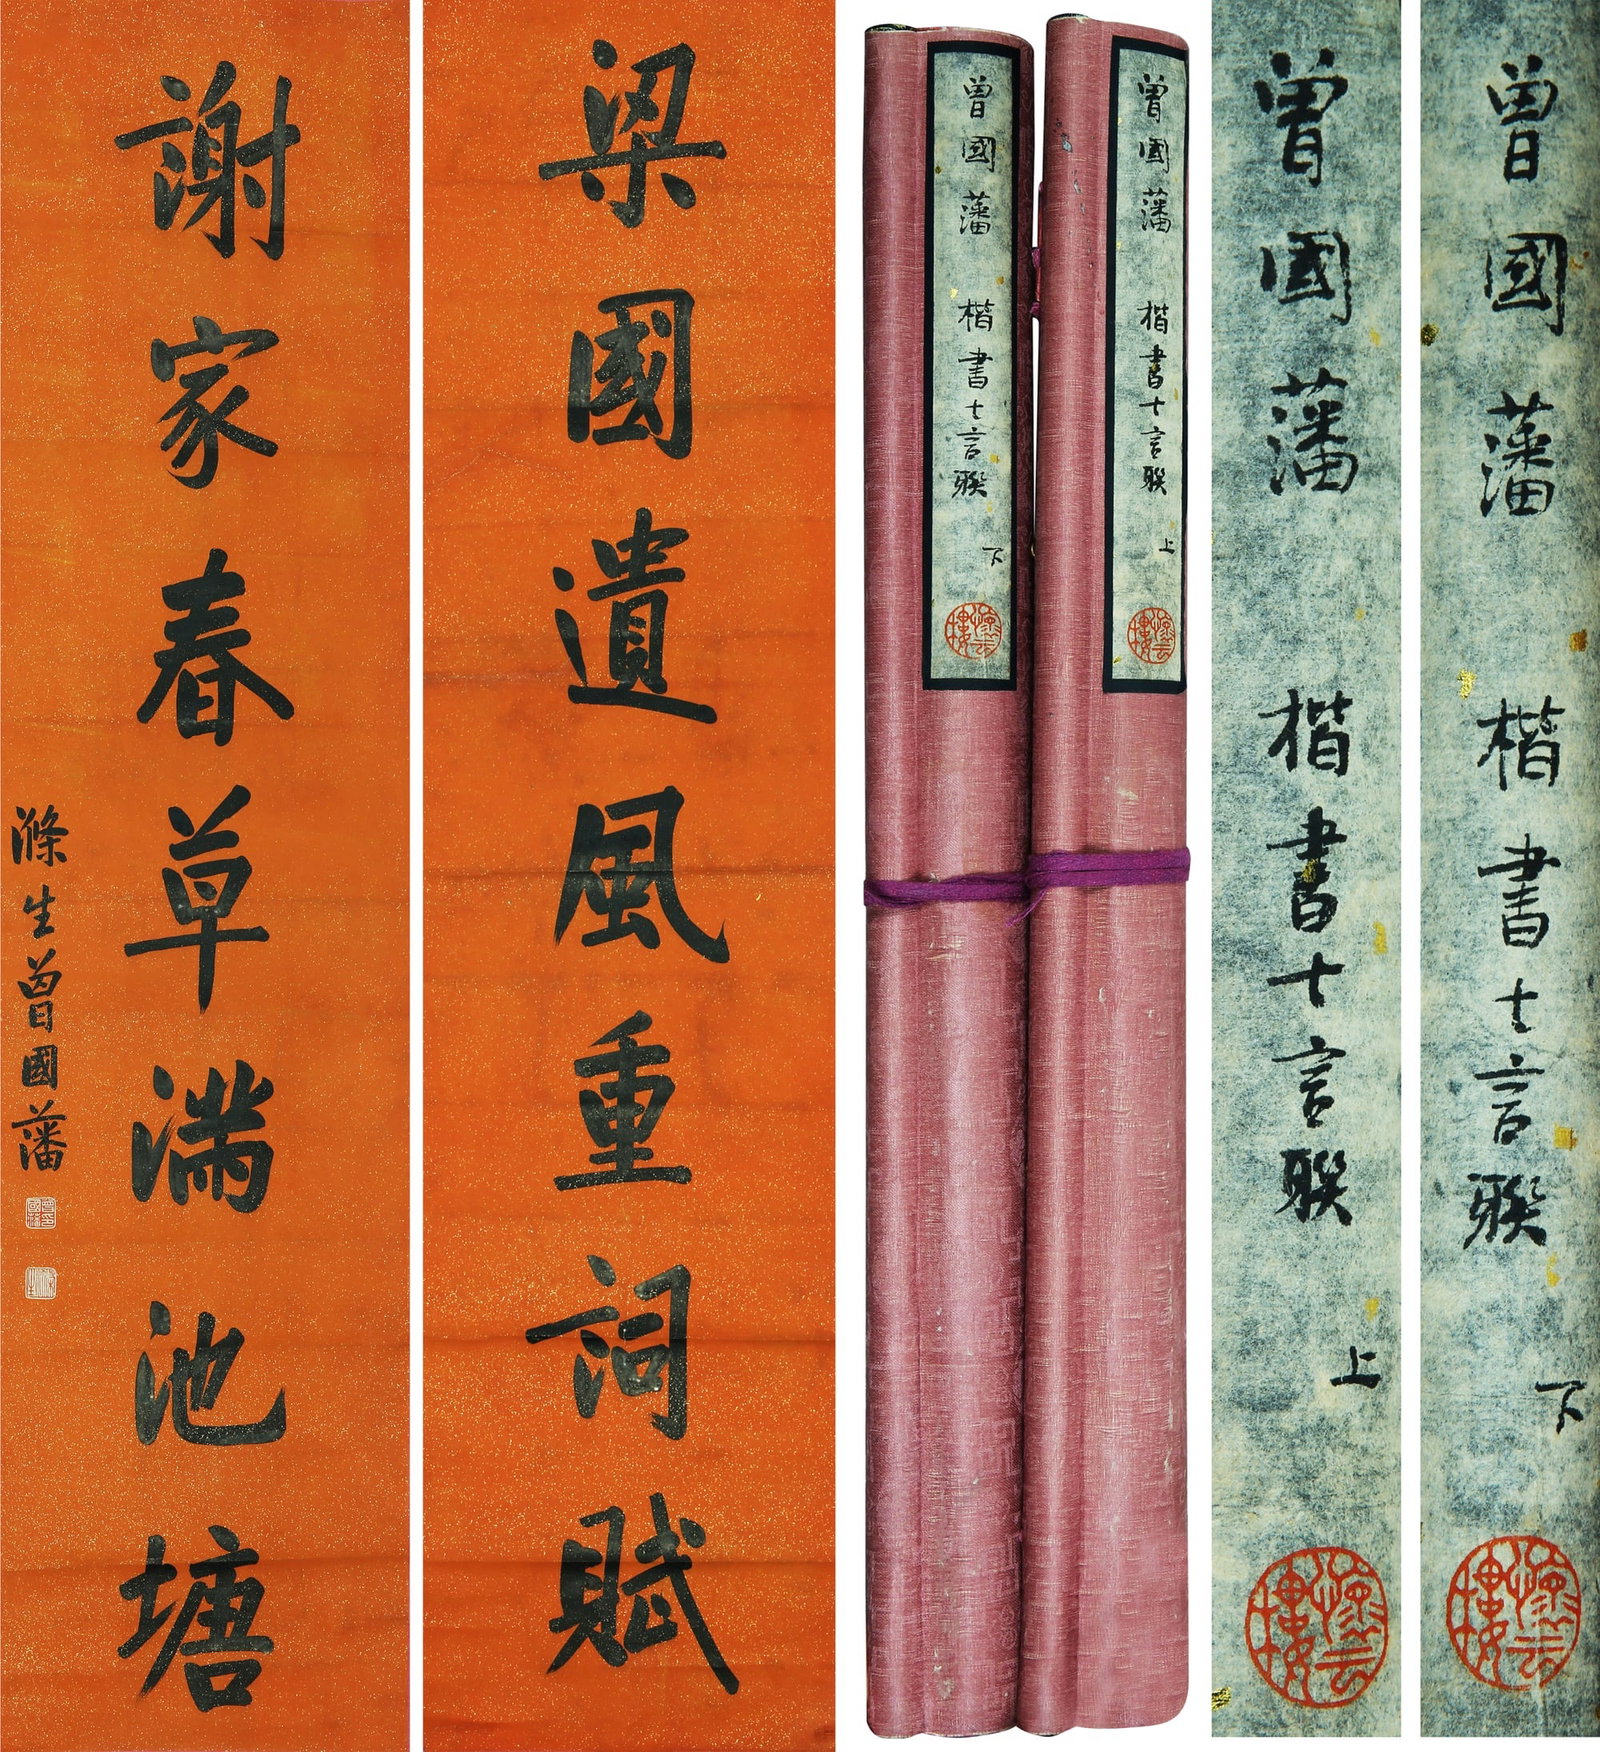 梁國遺風重詞賦
謝家春草滿池塘
滌生曾國藩
曾國藩 楷書七言聯 上
曾國藩 楷書七言聯 下
曾國藩 楷書七言聯 下
曾國藩 楷書七言聯 上